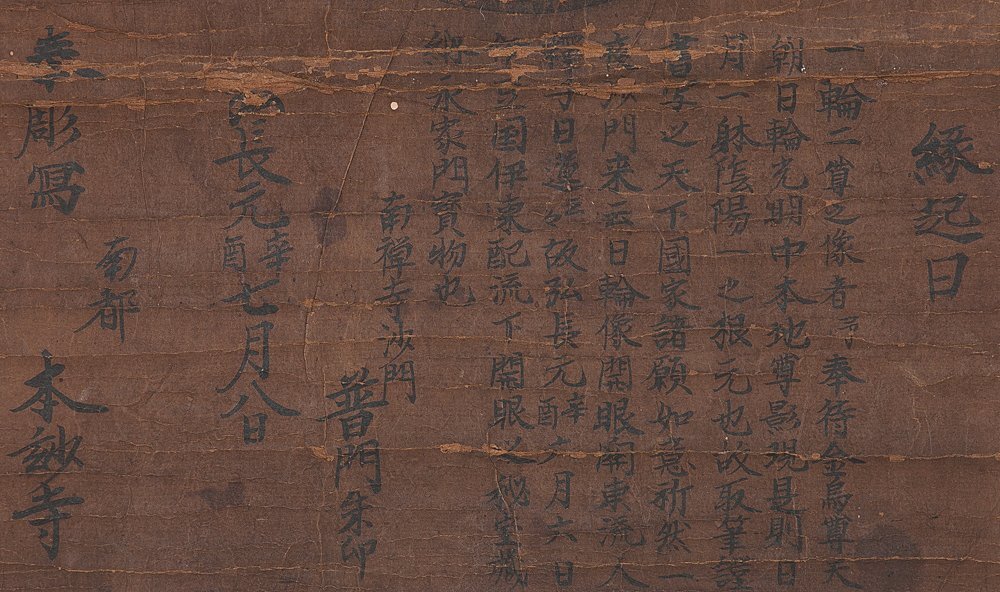 縁起曰
一輪二尊之像者 奉待金烏尊天
朝日輪光明中本地尊影現是則日
月一躰陰陽一之根元也故取筆謹
書写之天下國家諸願如意祈然一
沙門来云日輪像開眼開東流人
子日蓮云々故弘長元辛酉六月六日
豆国伊東配流下開眼之秘室蔵
納永家門寳物也
南禅寺沙門
普門朱印
弘長元辛酉七月八日
南都
奉彫写 本妙寺